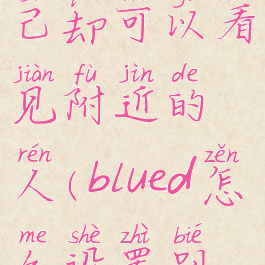 己却可以看
jiàn fù jìn de
见附近的
rén zěn
人(blued怎
me shè zhì bié
么设置别